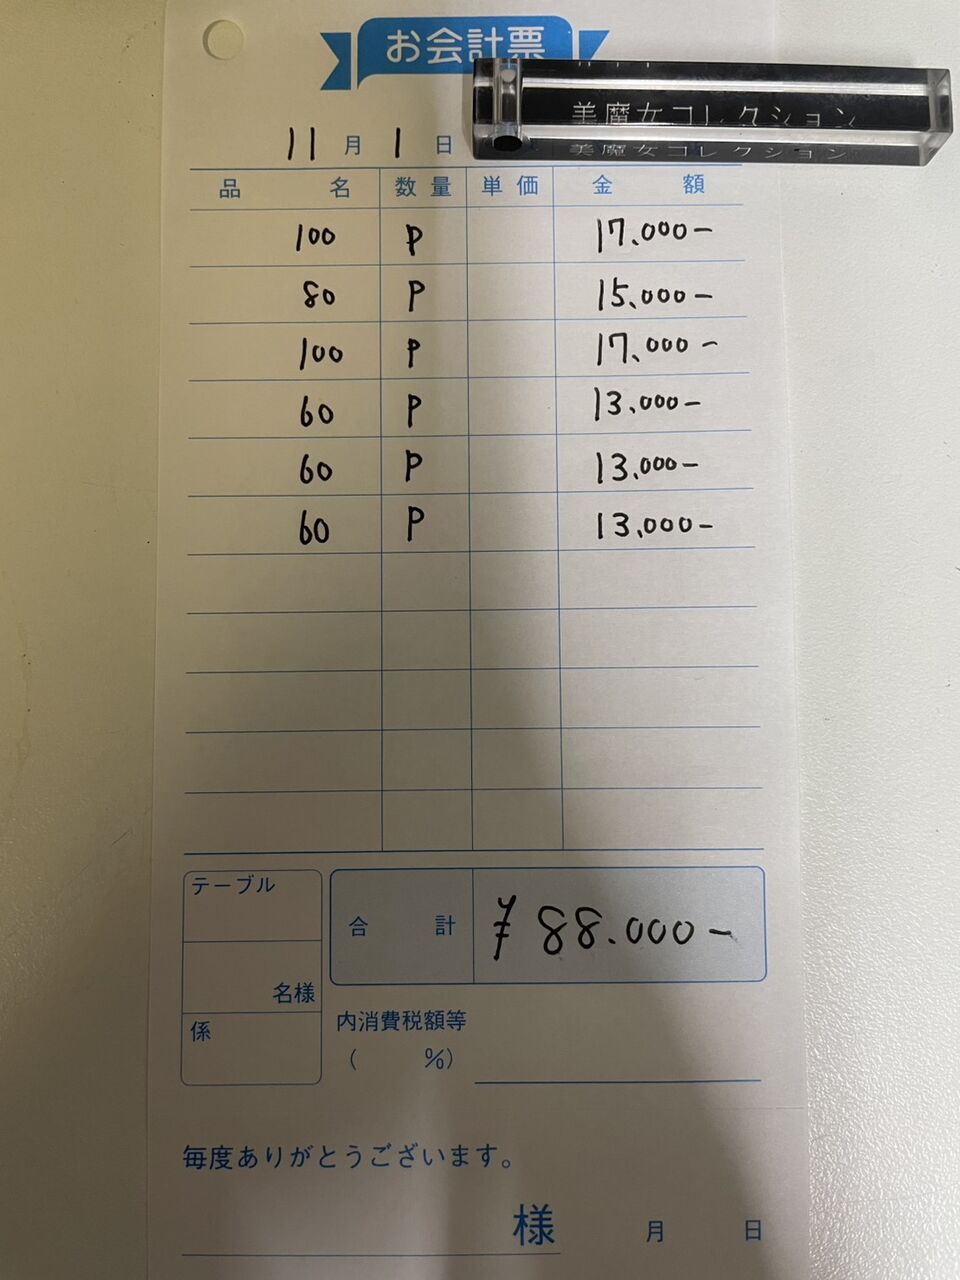 お会計票
美魔女コレクション
美魔女コレクション
11月1日
品名 数量 単価 金額
100 P 17.000-
80 P 15.000-
100 P 17.000-
60 P 13.000-
60 P 13.000-
60 P 13.000-
テーブル
合計 ¥88.000-
名様
係
内消費税額等
( %)
毎度ありがとうございます。
様 月 日